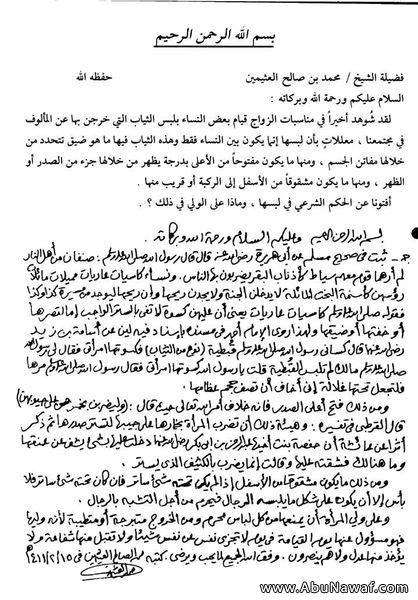 بسم الله الرحمن الرحيم
فضيلة الشيخ / محمد بن صالح العثيمين حفظه الله
السلام عليكم ورحمة الله وبركاته :
لقد شوهد أخيراً في مناسبات الزواج قيام بعض النساء بلبس الثياب التي خرجن بها عن المألوف
في مجتمعنا ، معللات بأن لبسها إنما يكون بين النساء فقط وهذه الثياب فيها ما هو ضيق تتحدد من
خلالها مفاتن الجسم ، ومنها ما يكون مفتوحاً من الأعلى بدرجة يظهر من خلالها جزء من الصدر أو
الظهر ، ومنها ما يكون مشقوقاً من الأسفل إلى الركبة أو قريب منها .
أفتونا عن الحكم الشرعي في لبسها ، وماذا على الولي في ذلك ؟ .
بسم الله الرحمن الرحيم وعليكم السلام ورحمة الله وبركاته
جـ - ثبت في صحيح مسلم عن أبي هريرة رضي الله عنه قال قال رسول الله صلى الله عليه وسلم : صنفان من أهل النار
لم أرهما قوم معهم سياط كأذناب البقر يضربون بها الناس . ونساء كاسيات عاريات مميلات مائلات
رؤسهن كأسنمة البخت المائلة لا يدخلن الجنة ولا يجدن ريحها وإن ريحها ليوجد من مسيرة كذا وكذا
فقوله صلى الله عليه وسلم كاسيات عاريات يعني أن عليهن كسوة لا تفي بالستر الواجب إما لقصرها
أو خفتها أو ضيقها ولهذا روى الإمام أحمد في مسنده بإسناد فيه لين عن أسامة بن زيد
رضي الله عنهما قال كساني رسول الله صلى الله عليه وسلم قبطية (نوع من الثياب) فكسوتها امرأتي فقال لي رسول الله
صلى الله عليه وسلم مالك لم تلبس القبطية قلت يا رسول الله كسوتها امرأتي فقال رسول الله صلى الله عليه وسلم مرها
فلتجعل تحتها غلالة إني أخاف أن تصف حجم عظامها .
ومن ذلك فتح أعلى الصدر فإنه خلاف أمر الله تعالى حيث قال : (وليضربن بخمرهن على جيوبهن)
قال القرطبي في تفسيره : وهيئة ذلك أن تضرب المرأة بخمارها على جيبها لتستر صدرها ثم ذكر
أثرا عن عائشة أن حفصة بنت أخيها عبدالرحمن بن أبي بكر رضي الله عنهما دخلت عليها بشيء يشف عن عنقها
وما هنالك فشقته عليها وقالت إنما يضرب بالكثيف الذي يستر
ومن ذلك ما يكون مشقوقا من الأسفل إذا لم يكن تحته شيء ساتر فإن كان تحته شيء ساتر فلا
بأس إلا أن يكون على شكل ما يلبسه الرجال فيحرم من أجل التشبه بالرجال .
وعلى ولي المرأة أن يمنعها من كل لباس محرم ومن الخروج متبرجة أو متطيبة لأنه وليها
فهو مسؤول عنها يوم القيامة في يوم لا تجزى نفس عن نفس شيئا ولا تقبل منها شفاعة ولا
يؤخذ منها عدل ولا هم ينصرون . وفق الله الجميع لما يحب ويرضى . كتبه محمد الصالح العثيمين في ١٤١١/٢/١٥هـ
www.AbuNawaf.com